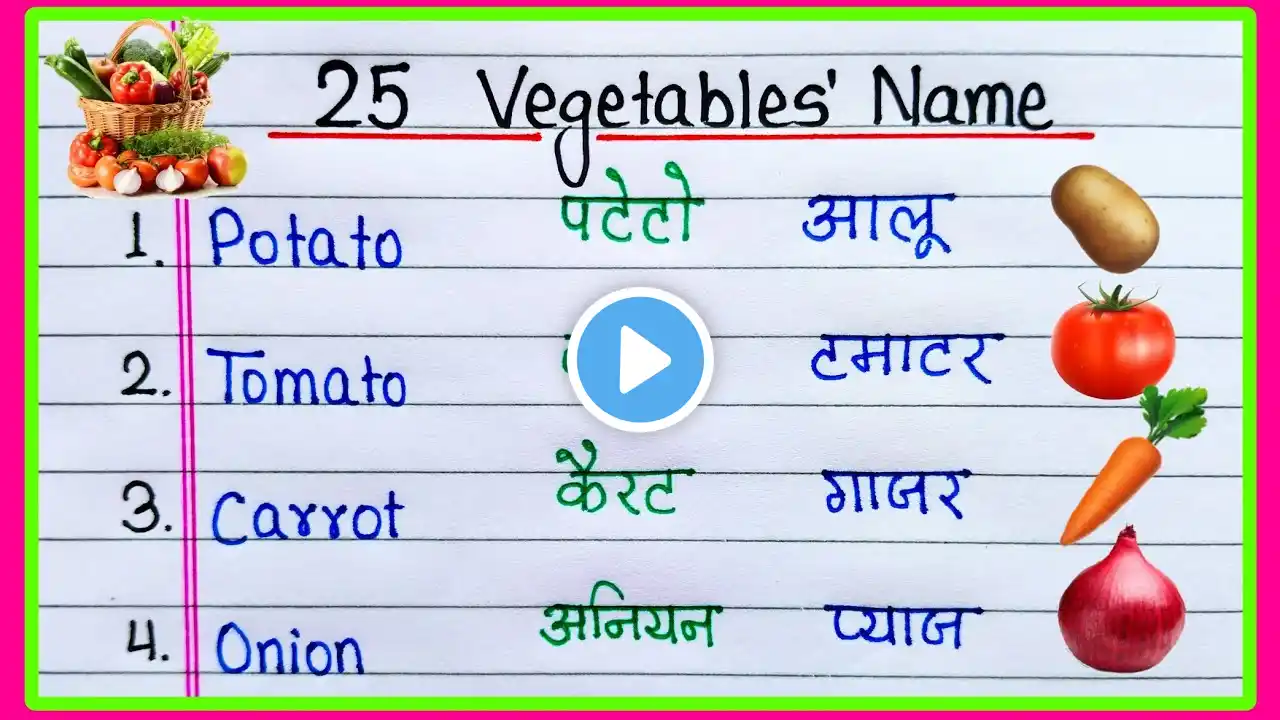 25 Vegetables' Name
1. Potato पटेटो आलू
2. Tomato टमाटर
3. Carrot कैरट गाजर
4. Onion अनियन प्याज